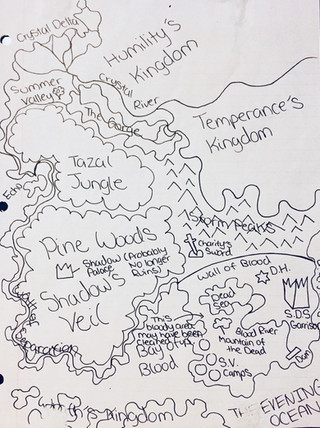 Crystal Delta
Humility's
Kingdom
Summer
Valley
Crystal
River
The Gorge
Temperance's
Kingdom
Tazal
Jungle
Storm Peaks
Pine Woods
Charity's
Sword
Shadow (Probably
Palace No longer
Ruins)
Shadow's
Veil
Wall of Blood
D.H.
Dead
Sea
S.D.S
Garrison
This
bloody area
may have been
cleaned up.
Bay of
Blood
Blood River
Mountain of
the Dead
S.V.
Camps
Kingdom
THE EVENING
OCEAN